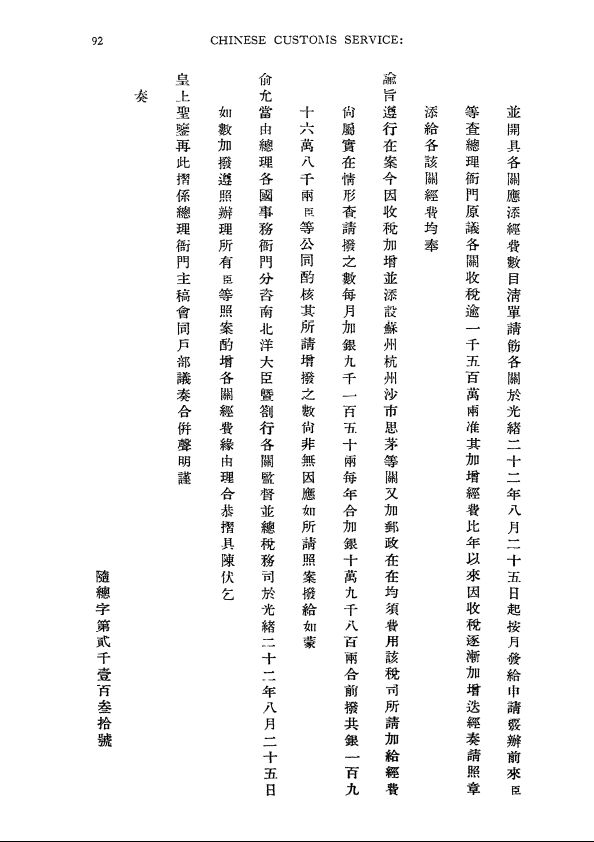 92
CHINESE CUSTOMS SERVICE:
並開具各關應添經費數目清單請飭各關於光緒二十二年八月二十五日起按月發給申請覈辦前來臣
等查總理衙門原議各關收稅逾一千五百萬兩准其加增經費比年以來因收稅逐漸加增迭經奏請照章
添給各該關經費均奉
諭旨遵行在案今因收稅加增並添設蘇州杭州沙市思茅等關又加郵政在在均須費用該稅司所請加給經費
尙屬實在情形查請撥之數每月加銀九千一百五十兩每年合加銀十萬九千八百兩合前撥共銀一百九
十六萬八千兩臣等公同酌核其所請增撥之數尙非無因應如所請照案撥給如蒙
俞允當由總理各國事務衙門分咨南北洋大臣曁劄行各關監督並總稅務司於光緒二十二年八月二十五日
如數加撥遵照辦理所有臣等照案酌增各關經費緣由理合恭摺具陳伏乞
皇上聖鑒再此摺係總理衙門主稿會同戶部議奏合併聲明謹
奏
隨總字第貳千壹百叁拾號